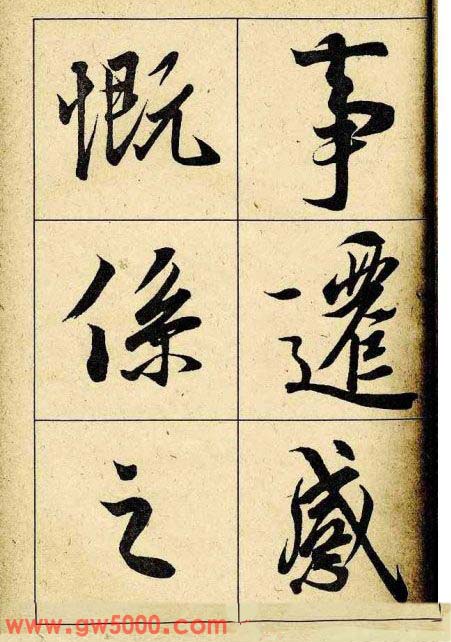 事遷感
慨係之
www.gw5000.com